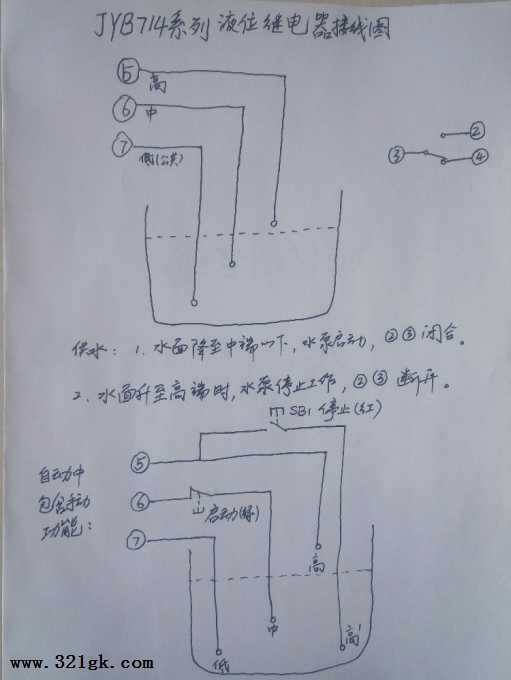 JYB714系列液位继电器接线图
⑤
高
⑥
中
⑦
低(公共)
②
③
④
供水: 1. 水面降至中端以下, 水泵启动, ②③闭合。
2. 水面升至高端时, 水泵停止工作, ②③断开。
SB1 停止(红)
自动中
包含手动
功能:
⑤
⑥
启动(绿)
⑦
高
中
低
高'
www.321gk.com